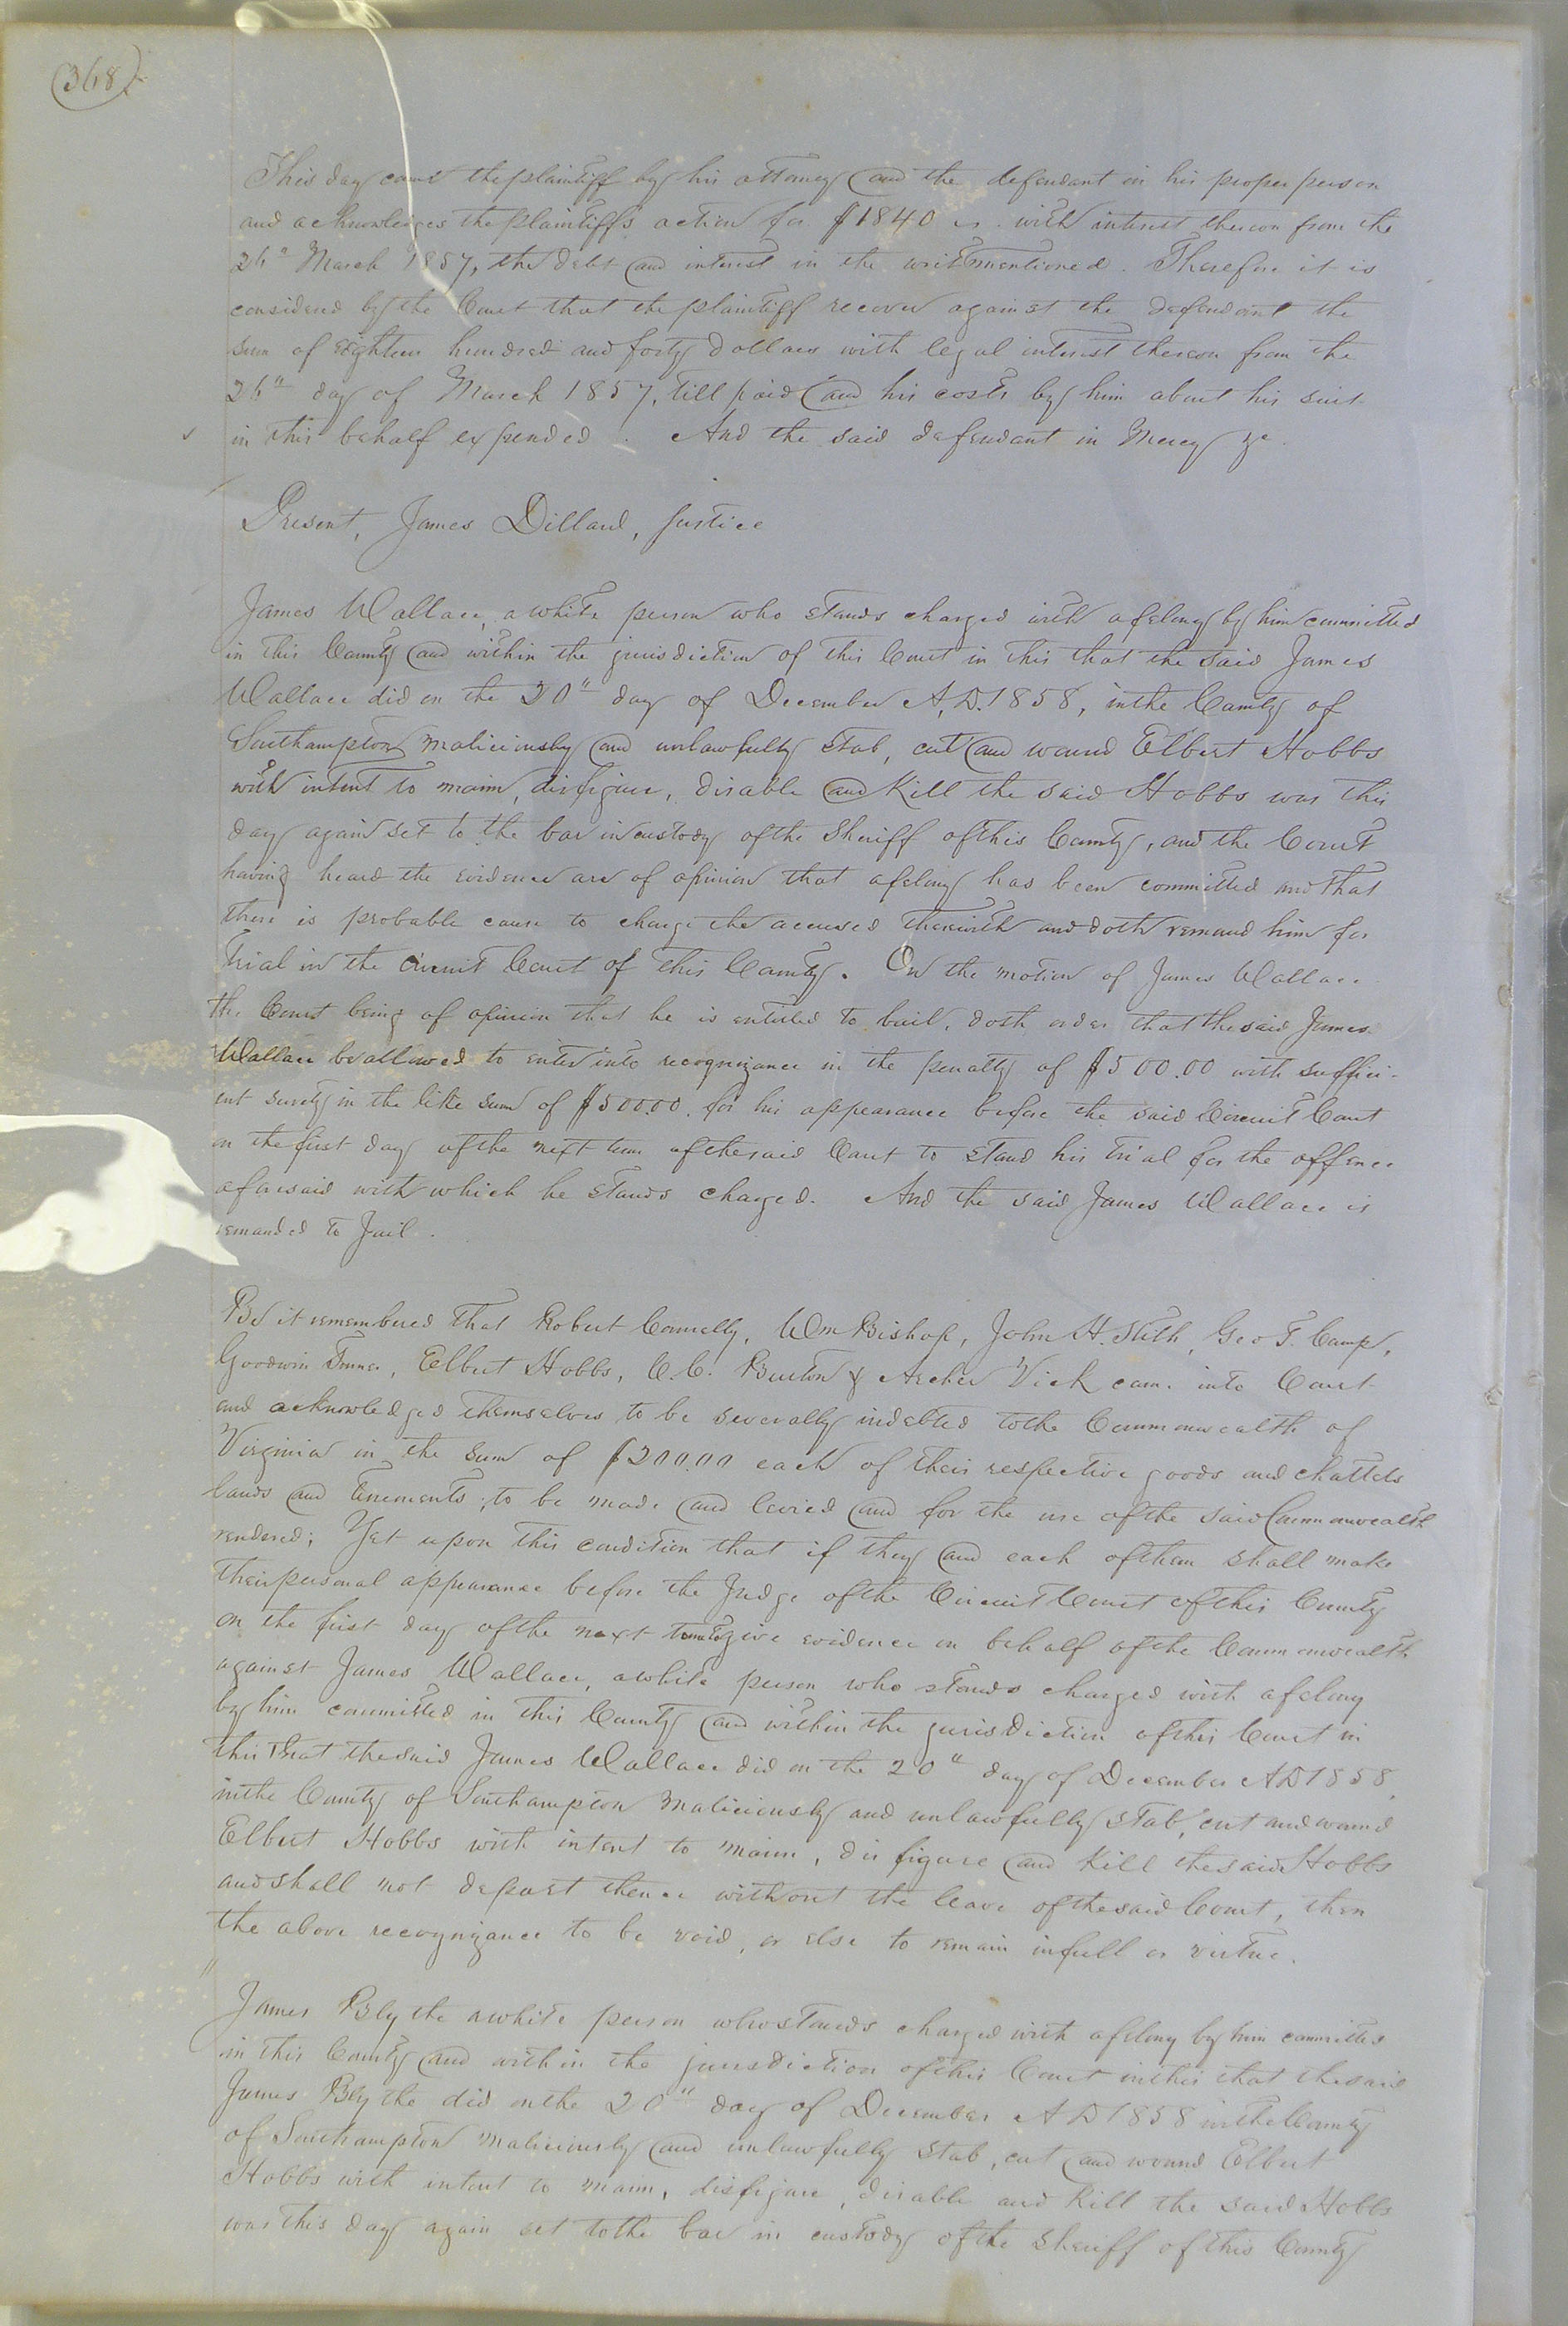 368
This day came the plaintiff by his attorney and the defendant in his proper person
and acknowledges the plaintiff's action for $1840 with interest thereon from the
26th March 1857, the debt and interest in the writ mentioned. Therefore it is
considered by the Court that the plaintiff recover against the defendant the
sum of Eighteen hundred and forty dollars with legal interest thereon from the
26th day of March 1857, till paid and his costs by him about his suit
in this behalf expended. And the said defendant in Mercy &c.
Present, James Dillard, Justice
James Wallace, a white person who stands charged with a felony by him committed
in this County and within the jurisdiction of this Court in this that the said James
Wallace did on the 20th day of December A.D. 1858, in the County of
Southampton maliciously and unlawfully stab, cut and wound Elbert Hobbs
with intent to maim, disfigure, disable and Kill the said Hobbs was this
day again set to the bar in custody of the Sheriff of this County, and the Court
having heard the evidence are of opinion that a felony has been committed and that
there is probable cause to charge the accused therewith and doth remand him for
trial in the Circuit Court of this County. On the motion of James Wallace
the Court being of opinion that he is entitled to bail, doth order that the said James
Wallace be allowed to enter into recognizance in the penalty of $500.00 with suffici-
ent surety in the like sum of $500.00. for his appearance before the said Circuit Court
on the first day of the next term of the said Court to stand his trial for the offence
aforesaid with which he stands charged. And the said James Wallace is
remanded to Jail.
Be it remembered that Robert Connelly, Wm Bishop, John H. Stith, Geo T. Camp,
Goodwin Turner, Elbert Hobbs, C. C. Burton & Archer Vick came into Court
and acknowledged themselves to be severally indebted to the Commonwealth of
Virginia in the sum of $200.00 each of their respective goods and chattels
lands and tenements; to be made and levied and for the use of the said Commonwealth
rendered; Yet upon this condition that if they and each of them shall make
their personal appearance before the Judge of the Circuit Court of this County
on the first day of the next term to give evidence on behalf of the Commonwealth
against James Wallace, a white person who stands charged with a felony
by him committed in this County and within the jurisdiction of this Court in
this that the said James Wallace did on the 20th day of December AD 1858,
in the County of Southampton Maliciously and unlawfully stab, cut and wound
Elbert Hobbs with intent to maim, disfigure and Kill the said Hobbs
and shall not depart thence without the leave of the said Court, then
the above recognizance to be void, or else to remain in full or virtue.
James Blythe a white person who stands charged with a felony by him committed
in this County and within the jurisdiction of this Court in this that the said
James Blythe did on the 20th day of December A D 1858 in the County
of Southampton Maliciously and unlawfully stab, cut and wound Elbert
Hobbs with intent to maim, disfigure, disable and Kill the said Hobbs
was this day again set to the bar in custody of the Sheriff of this County